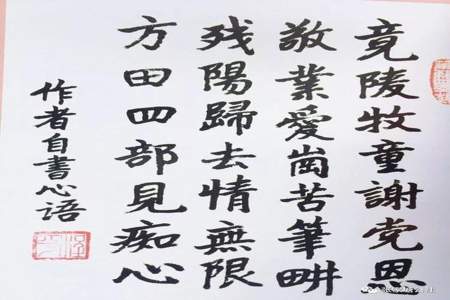 竟陵牧童謝党恩
敬業愛崗苦筆畊
残陽歸去情無限
方田四部見痴心
作者自書心語